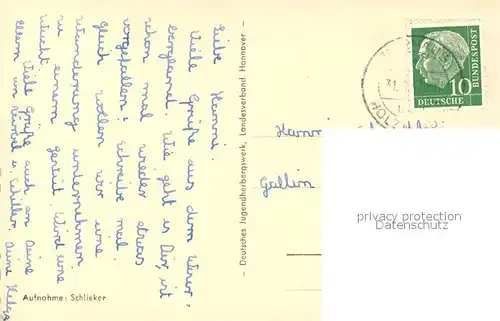 Liebe Hanni.
Viele Grüße aus dem Weser-
bergland. Wie geht es Dir, ist
schon mal wieder etwas
vorgefallen? Schreibe mal.
Gleich wollen wir eine
Wanderung unternehmen
zu einem Gestüt. Wird eine
Wucht.
Viele Grüße auch an Deine
Eltern
Deine Helga
Aufnahme: Schlieker
– Deutsches Jugendherbergswerk, Landesverband Hannover –
DEUTSCHE
BUNDESPOST
10
HOLZ
privacy protection
Datenschutz